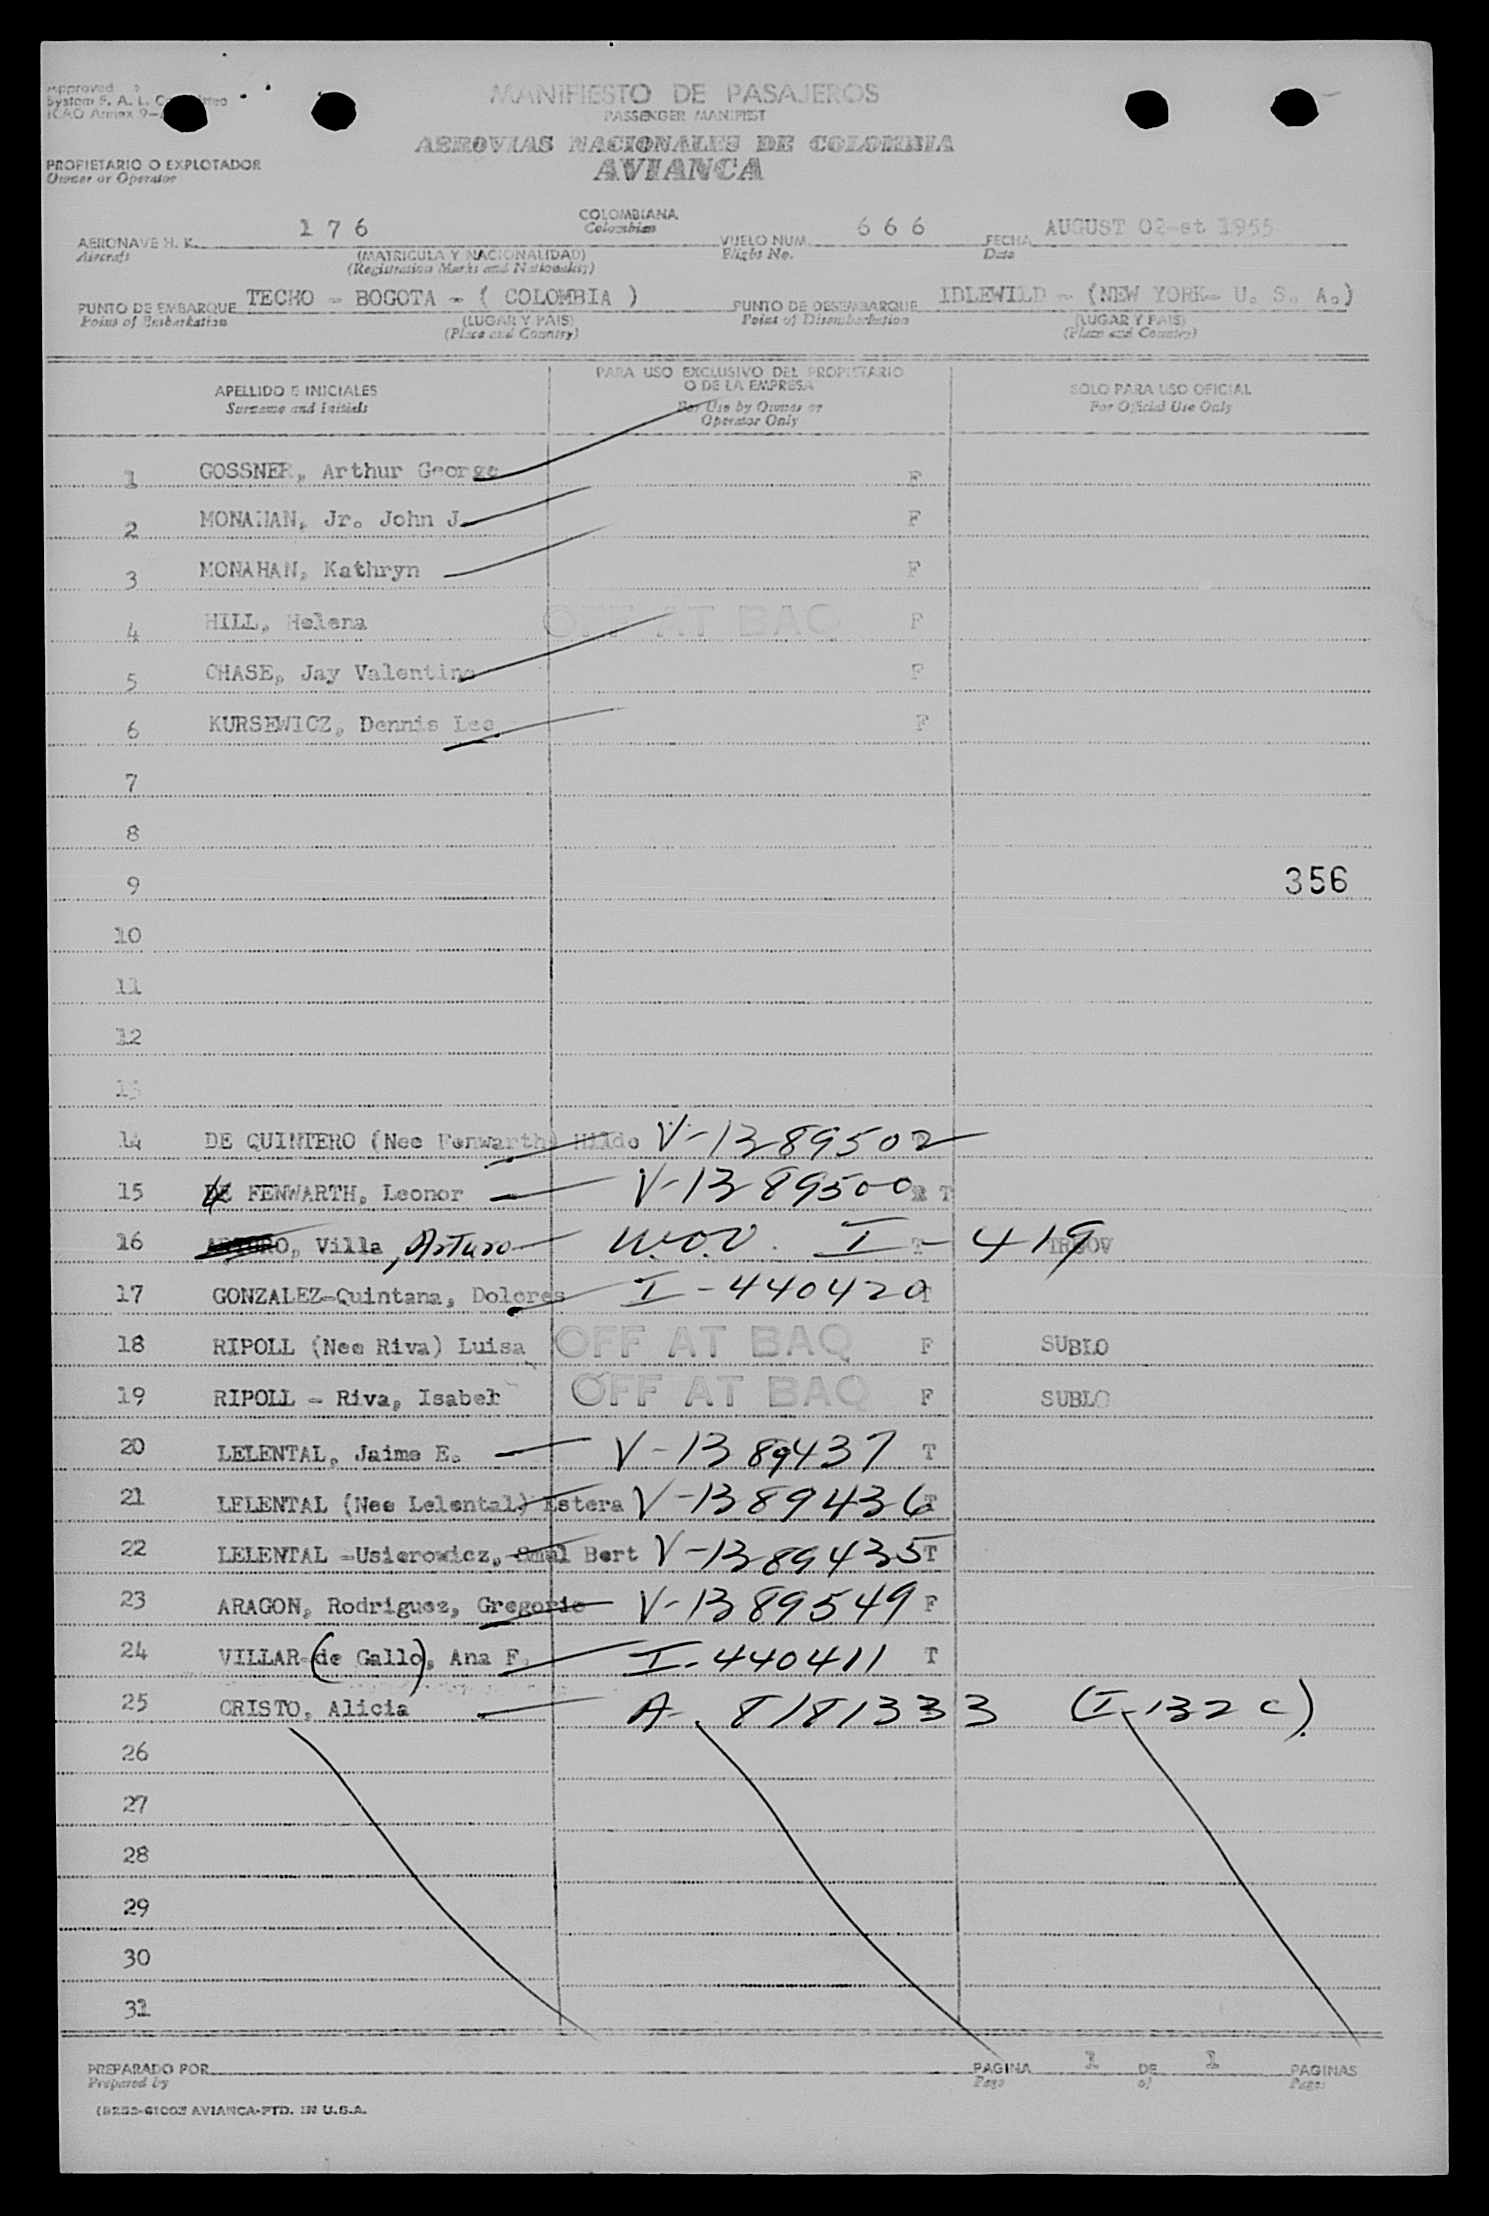 Approved
System F. A. L. Committee
ICAO Annex 9-
MANIFIESTO DE PASAJEROS
PASSENGER MANIFEST
AEROVIAS NACIONALES DE COLOMBIA
AVIANCA
PROPIETARIO O EXPLOTADOR
Owner or Operator
AERONAVE H. K. 176 COLOMBIANA VUELO NUM. 666 FECHA AUGUST 02-st 1955
Aircraft Colombian Flight No. Date
(MATRICULA Y NACIONALIDAD)
(Registration Marks and Nationality)
PUNTO DE EMBARQUE TECHO - BOGOTA - ( COLOMBIA ) PUNTO DE DESEMBARQUE IDLEWILD - (NEW YORK- U. S. A.)
Point of Embarkation (LUGAR Y PAIS) Point of Disembarkation (LUGAR Y PAIS)
(Place and Country) (Place and Country)
APELLIDO E INICIALES PARA USO EXCLUSIVO DEL PROPIETARIO O DE LA EMPRESA SOLO PARA USO OFICIAL
Surname and Initials For Use by Owner or Operator Only For Official Use Only
1 GOSSNER, Arthur George F
2 MONAHAN, Jr. John J. F
3 MONAHAN, Kathryn F
4 HILL, Helena OFF AT BAQ F
5 CHASE, Jay Valentine F
6 KURSEWICZ, Dennis Lee F
7
8
9 356
10
11
12
13
14 DE QUINTERO (Nee Fenwarth) Hilde V-1389502 T
15 DE FENWARTH, Leonor V-1389500 R T
16 ARTURO, Villa, Arturo W.O.V. I-419 T TRGOV
17 GONZALEZ-Quintana, Dolores I-440420 T
18 RIPOLL (Nee Riva) Luisa OFF AT BAQ F SUBLO
19 RIPOLL - Riva, Isabel OFF AT BAQ F SUBLO
20 LELENTAL, Jaime E. V-1389437 T
21 LELENTAL (Nee Lelental) Estera V-1389436 T
22 LELENTAL -Usierowicz, Smul Bert V-1389435 T
23 ARAGON, Rodriguez, Gregorio V-1389549 F
24 VILLAR-(de Gallo), Ana F. I-440411 T
25 CRISTO, Alicia A- 8181333 (I-132 C)
26
27
28
29
30
31
PREPARADO POR PAGINA 1 DE 1 PAGINAS
Prepared by Page of Pages
AVIANCA-PTD. IN U.S.A.